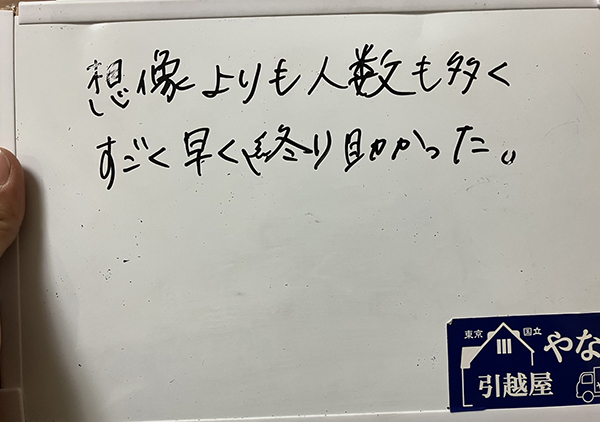 想像よりも人数も多く
すごく早く終り助かった。
東京 国立 やな
引越屋